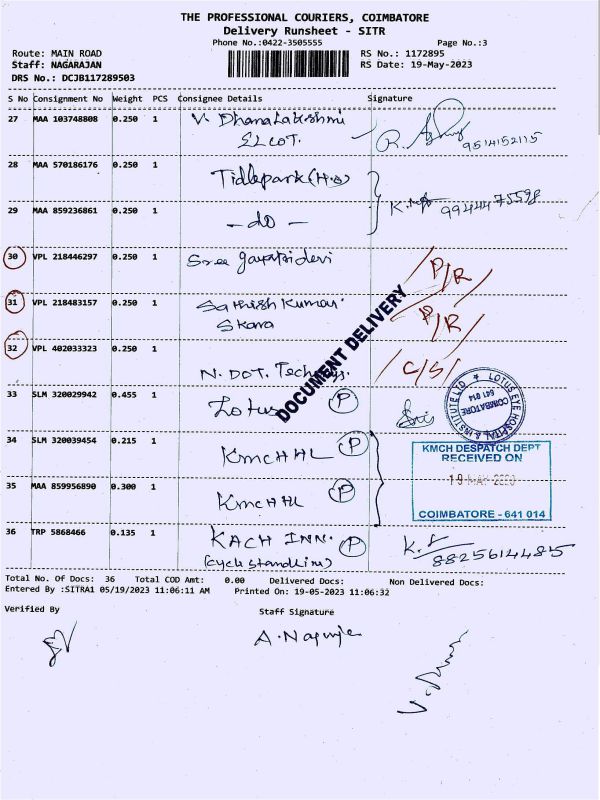 THE PROFESSIONAL COURIERS, COIMBATORE
Delivery Runsheet - SITR
Phone No.:0422-3505555 Page No.:3
Route: MAIN ROAD RS No.: 1172895
Staff: NAGARAJAN RS Date: 19-May-2023
DRS No.: DCJB117289503
S No Consignment No Weight PCS Consignee Details Signature
27 MAA 103748808 0.250 1 V. Dhanalakshmi
ELCOT. 9514152115
28 MAA 570186176 0.250 1 Tidlepark (H.O)
29 MAA 859236861 0.250 1 - do - 9944475598
30 VPL 218446297 0.250 1 Sree gayatridevi P/R
31 VPL 218483157 0.250 1 Sathish Kumar P/R
Skara
32 VPL 402033323 0.250 1 N. DOT. C/S
DOCUMENT DELIVERY
33 SLM 320029942 0.455 1 Lotus P
LOTUS EYE HOSPITAL & INSTITUTE LTD
COIMBATORE 641 014
34 SLM 320039454 0.215 1 KMCHHL P
KMCH DESPATCH DEPT
RECEIVED ON
35 MAA 859956890 0.300 1 KMCHHL P
19 MAY
COIMBATORE - 641 014
36 TRP 5868466 0.135 1 KACH INN. P
88256144815
Total No. Of Docs: 36 Total COD Amt: 0.00 Delivered Docs: Non Delivered Docs:
Entered By :SITRA1 05/19/2023 11:06:11 AM Printed On: 19-05-2023 11:06:32
Verified By Staff Signature